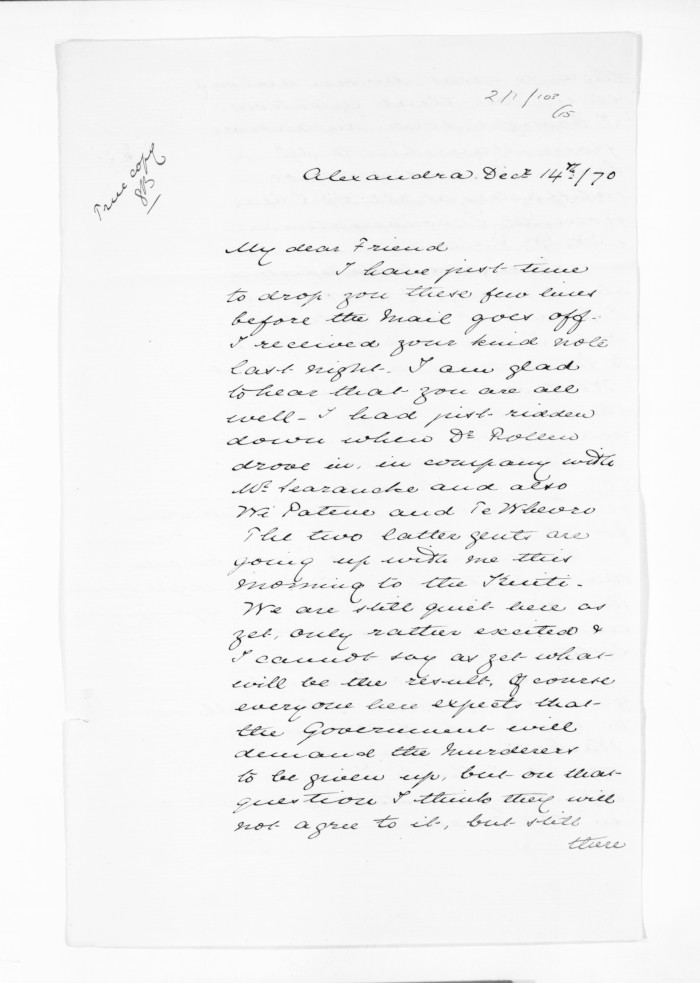 2/1/103
/15
True copy
Alexandra Decr 14th/70
My dear Friend
I have just time
to drop you these few lines
before the Mail goes off.
I received your kind note
last night. I am glad
to hear that you are all
well - I had just ridden
down when Dr Pollen
drove in, in company with
Mr Searancke and also
Wi Patene and Te Wheoro
The two latter gents are
going up with me this
morning to the Kuiti.
We are still quiet here as
yet, only rather excited &
I cannot say as yet what
will be the result, Of course
everyone here expects that
the Government will
demand the Murderers
to be given up, but on that
question I think they will
not agree to it, but still
there